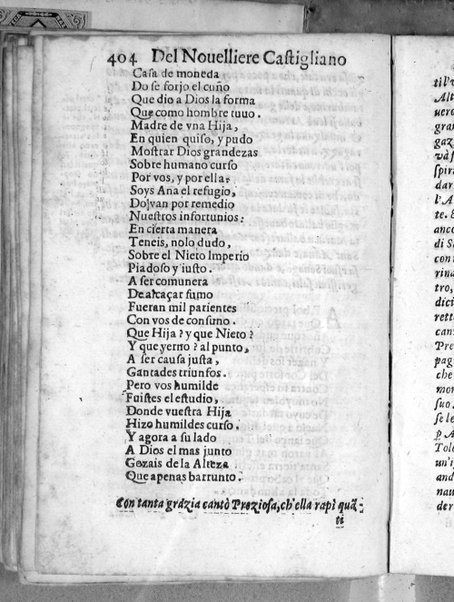 404 Del Nouelliere Castigliano
Casa de moneda
Do se forjo el cuño
Que dio a Dios la forma
Que como hombre tuuo.
Madre de vna Hija,
En quien quiso, y pudo
Mostrar Dios grandezas
Sobre humano curso
Por vos, y por ella?
Soys Ana el refugio,
Do van por remedio
Nuestros infortunios:
En cierta manera
Teneis, nolo dudo,
Sobre el Nieto Imperio
Piadoso y iusto.
A ser comunera
De alcaçar sumo
Fueran mil parientes
Con vos de consuno.
Que Hija? y que Nieto?
Y que yerno? al punto,
A ser causa justa,
Gantades triunfos.
Pero vos humilde
Fuistes el estudio,
Donde vuestra Hija
Hizo humildes curso.
Y agora a su lado
A Dios el mas junto
Gozais de la Alteza
Que apenas barrunto.
Con tanta grazia cantò Preziosa, ch'ella rapì quã-
ti
til'
Alt
uero
gran
gaz
spir
dar
l'A
te.
anco
di S
con
rina
tro,
dici
rett
can
Pre
pag
che
mo
suo
se le
p A
Tole
un'i
and
nau
der